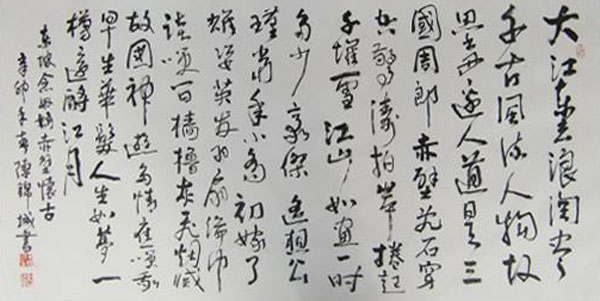 大江東去浪淘尽
千古風流人物故
壘西邊人道是三
國周郎赤壁乱石穿
空驚濤拍岸捲起
千堆雪江山如画一時
多少豪傑遙想公
瑾當年小喬初嫁了
雄姿英发羽扇綸巾
談笑間檣櫓灰飛烟滅
故國神遊多情應笑我
早生華髮人生如夢一
樽還酹江月
東坡念奴嬌赤壁懷古
辛卯年春陳錦城書